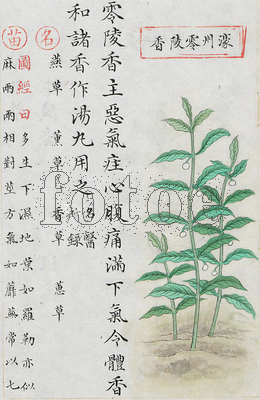 濠州零陵香
零陵香主惡氣疰心腹痛滿下氣令體香
和諸香作湯丸用之名醫所錄
名 燕草 薰草 香草 蕙草
苗 圖經曰多生下濕地葉如羅勒亦似
麻兩兩相對莖方氣如蘼蕪常以七
fotoe